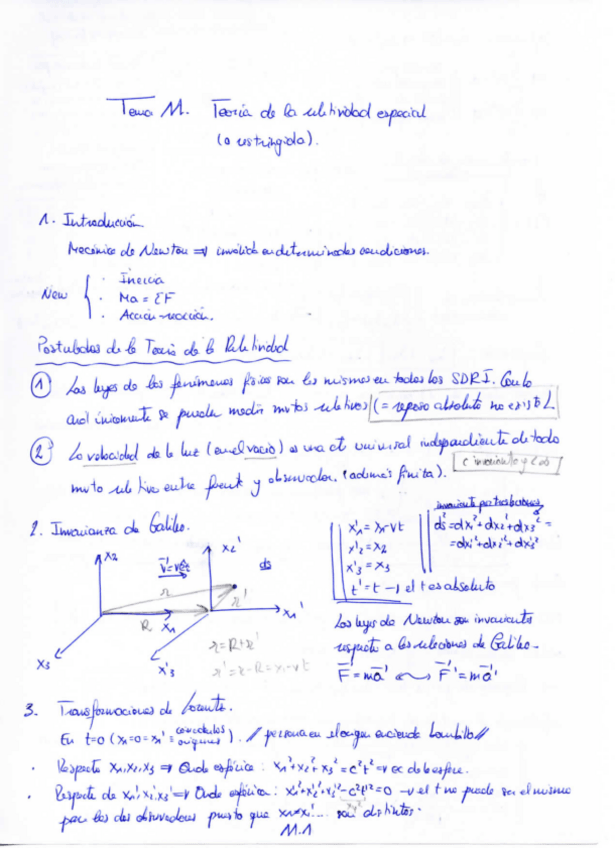 Tema 11. Teoría de la relatividad especial
(o restringida).
1. Introducción
Mecánica de Newton ⇒ inválida en determinadas condiciones.
New { · Inercia
· Ma = ΣF
· Acción-reacción.
Postulados de la Teoría de la Relatividad
① Las leyes de los fenómenos físicos son las mismas en todos los SDRI. Con lo
cual únicamente se pueden medir mvtos relativos (= reposo absoluto no existe).
② La velocidad de la luz (en el vacío) es una ct universal independiente de todo
mvto relativo entre fuente y observador. (además finita).
2. Invarianza de Galileo.
x₂
x₂'
r
r'
R
x₁
x₁'
x₃
x₃'
ds
r = R + r'
r' = r - R = r - vt
x'₁ = x₁ - vt
x'₂ = x₂
x'₃ = x₃
t' = t → el t es absoluto
ds² = dx₁² + dx₂² + dx₃² =
= dx₁'² + dx₂'² + dx₃'²
Las leyes de Newton son invariantes
respecto a las relaciones de Galileo.
F = ma F' = ma'
3. Transformaciones de Lorentz.
En t=0 (x₁=0=x₁' = orígenes). // persona en el origen enciende bombilla //
· Respecto x₁,x₂,x₃ ⇒ Onda esférica: x₁²+x₂²+x₃² = c²t² ec de la esfera.
· Respecto de x₁',x₂',x₃' ⇒ Onda esférica: x₁'²+x₂'²+x₃'²-c²t'²=0 → el t no puede ser el mismo
para los dos observadores puesto que x₁≠x₁'... son distintos.
11.1